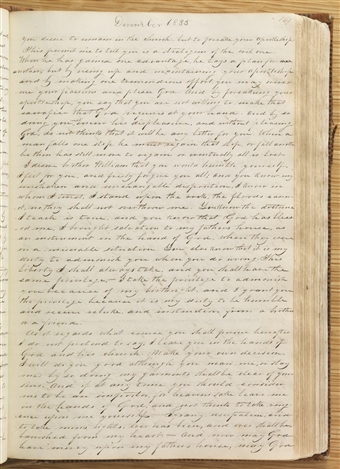 December 1835
you desire to remain in the church but to forsake your apostleship
this proves me to tell you is a stratagem of the evil one
When he has gained one advantage, he lays a plan for an
other, but by rising up and maintaining your apostleship
and by making one tremendous effort, you may overcome
your passions and please God. And by forsaking your
apostleship, you say that you are not willing to make that
sacrafice that God requires at your hand. And by so
doing you incur his displeasure, and without pleasing
God do not think that it will be any better for you. When a
man falls one step he must regain that step, or fall another
he then has still more to regain, or eventually all is lost.
I desire brother William that you would humble yourself,
I feel for you, and freely forgive you all, and you know my
unshaken and unchangable disposition. I know in
whom I trust, I stand upon the rock the floods cannot
no they shall not overthrow me. You know the doctrine
I teach is true, and you know that God has bless-
ed me. I brought salvation to my fathers house, as
an instrument in the hand of God, when they were
in a miserable situation. You also know that it is my
duty to admonish you when you do wrong. This
liberty I shall always take and you shall have the
same privilege. I take the privilege to admonish
you because of my birthright, and I grant you
the privilege because it is my duty to be humble
and receive rebuke and instruction, from a brother
or a friend.
As it regards what course you shall pursue hereafter,
I do not pretend to say, I leave you in the hands of
God and his church. Make your own decision,
I will do you good although you mar me, or slay
me. By so doing my garments shall be clear of your
sins. And if at any time you should consider
me to be an imposter, for heavens sake leave me
in the hands of God and not think to take veng-
ance upon me yourself.
tyrany usurpation, and
to take mens rights ever has been, and ever shall be
banished from my heart. And now may God
have mercy upon my fathers house, may God